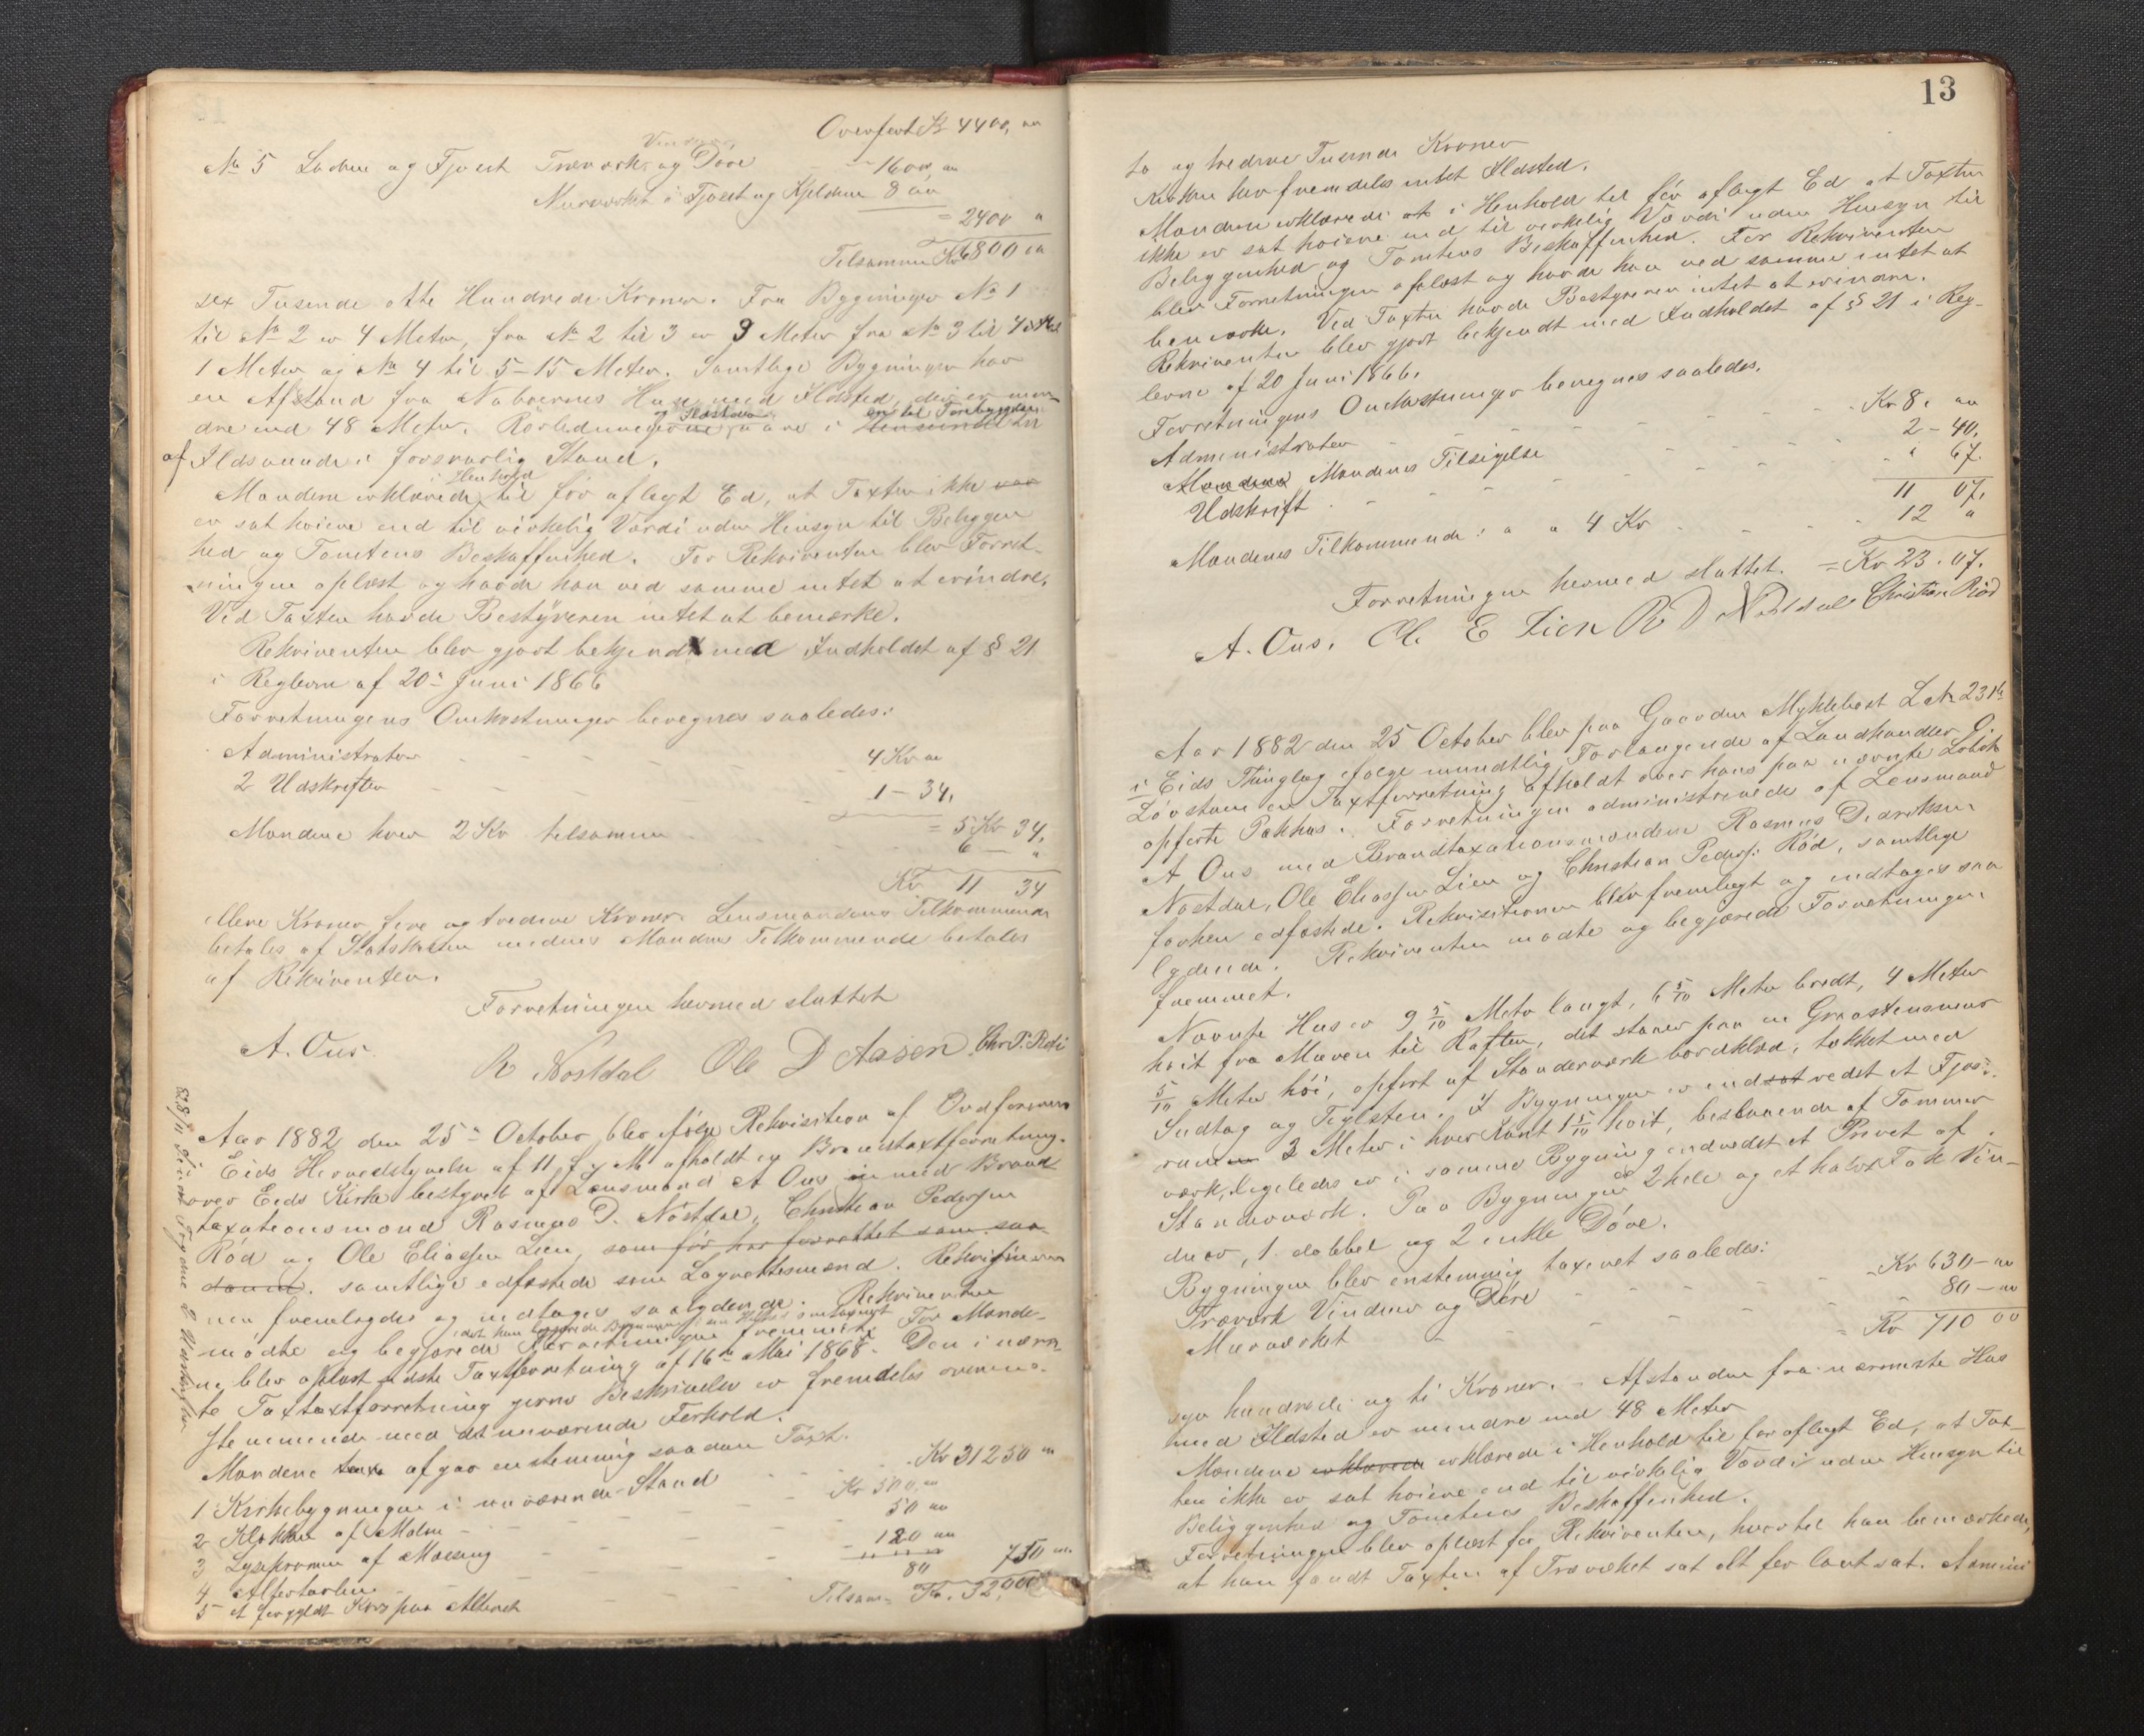 Overført Kr 4400, 00
Vinduer
No 5 Laden og Fjøset Træværk og Døre 1600, 00
Murværket i Fjøset og Kjelderen 800
= 2400 "
Tilsammen Kr 6800 00
sex Tusende otte Hundrede Kroner. Fra Bygninger No 1
til No 2 er 4 Meter, fra No 2 til 3 er 9 Meter fra No 3 til 4
1 Meter og No 4 til 5-15 Meter. Samtlige Bygninger har
en Afstand fra Naboernes Hus med Ildsted, der er min-
dre end 48 Meter. Rørledningerne og Ildstederne vare i Henseende til Forebyggelse
af Ildsvaade i forsvarlig Stand.
Mændene erklærede i Henhold til før aflagt Ed, at Taxten ikke var
er sat høiere end til virkelig Værdi uden Hensyn til Beliggen
hed og Tomtens Beskaffenhed. For Rekvirenten blev Forret-
ningen oplæst og havde han ved samme intet at erindre.
Ved Taxten havde Bestyreren intet at bemærke.
Rekvirenten blev gjort bekjendt med Indholdet af § 21
i Reglerne af 20de Juni 1866
Forretningens Omkostninger beregnes saaledes:
Administrator 4 Kr 00
2 Udskrifter 1 - 34.
= 5 Kr 34.
Mændene hver 2 Kr tilsammen 6 - "
Kr 11 34
elleve Kroner fire og tredive Kroner. Lensmandens Tilkommende
betales af Statskassen medens Mændenes Tilkommende betales
af Rekvirenten.
Forretningen hermed sluttet
A. Ous. R Nostdal Ole D Aasen Chr. P. Rød
Aar 1882 den 25de October blev ifølge Rekvisition af Ordføreren
i Eids Herredstyrelse af 11 f. M. afholdt en Brandtaxtforretning
over Eids Kirke bestyret af Lensmand A Ous med Brand
taxationsmænd Rasmus D. Nøstdal, Christian Pedersen
Rød og Ole Eliassen Lien, som før har forrettet som saa-
danne. samtlige edfæstede som Lagrettesmænd. Rekvisitio-
nen fremlagdes og indtages saalydende. Rekvirenten
mødte og begjærede Forretningen fremmet. For Mænde-
ne blev oplæst sidste Taxtforretning af 16de Mai 1868. Den i nævn-
te Taxtforretning givne Beskrivelse er fremdeles overens-
stemmende med det nuværende Forhold.
Mændene taxe afgav enstemmig saadan Taxt.
1 Kirkebygningen i nuværende Stand Kr 31250 00
2 Klokken af Malm Kr 500,00
3 Lysekronen af Messing 50 00
4 Altertavlen 120 00
5 et forgyldt Kors paa Alteret 80 750 00
Tilsam. Kr. 32,000
13
to og tredive Tusende Kroner
Kirken har fremdeles intet Ildsted.
Mændene erklærede at i Henhold til før aflagt Ed at Taxten
ikke er sat høiere end til virkelig Værdi uden Hensyn til
Beliggenhed og Tomtens Beskaffenhed. For Rekvirenten
blev Forretningen oplæst og havde han ved samme intet at
bemærke. Ved Taxten havde Bestyreren intet at erindre.
Rekvirenten blev gjort bekjendt med Indholdet af § 21 i Reg-
lerne af 20 Juni 1866.
Forretningens Omkostninger beregnes saaledes.
Administrator Kr 8. 00
Mændenes Mændenes Tilsigelse 2 - 40.
Udskrift " 67.
11 07.
Mændenes Tilkommende: a 4 Kr 12 "
= Kr 23. 07.
Forretningen hermed sluttet.
A. Ous. Ole E Lien R D Nøstdal Christian Rød
Aar 1882 den 25 October blev paa Gaarden Myklebost L No 231
i Eids Thinglag ifølge mundtlig Forlangende af Landhandler O.
Løvstuen en Taxtforretning afholdt over hans paa nævnte
opførte Pakhus. Forretningen administreredes af Lensmand
A Ous med Brandtaxationsmændene Rasmus Dideriksen
Nøstdal, Ole Eliassen Lien og Christian Peders. Rød, samtlige
forhen edfæstede. Rekvisitionen blev fremlagt og indtages saa
lydende. Rekvirenten mødte og begjærede Forretningen
fremmet.
Nævnte Hus er 9 5/10 Meter langt, 6 5/10 Meter bredt, 4 Meter
høit fra Muren til Raften, det staaer paa en Graastensmur
5/10 Meter høi, opført af Stænderværk bordklæd, tækket med
Sudtag og Teglsten. I Bygningen er indredet et Fjøs-
rum 3 Meter i hver Kant 1 5/10 høit, bestaaende af Tømmer
værk, ligeledes er i samme Bygning indredet et Privet af
Stænderværk. Paa Bygningen er 2 hele og et halvt Fak Vin-
duer, 1 dobbel og 2 enkle Døre.
Bygningen blev enstemmig taxeret saaledes:
Træværk Vinduer og Døre Kr 630 - 00
Murværket 80 - 00
Kr 710 00
syv hundrede og ti Kroner. - Afstanden fra nærmeste Hus
med Ildsted er mindre end 48 Meter
Mændene erklærede erklærede i Henhold til før aflagt Ed, at Tax-
ten ikke er sat høiere end til virkelig Værdi uden Hensyn til
Beliggenhed og Tomtens Beskaffenhed.
Forretningen blev oplæst for Rekvirenten, hvortil han bemærkede,
at han fandt Taxten af Træværket sat alt for lavt sat. Admini